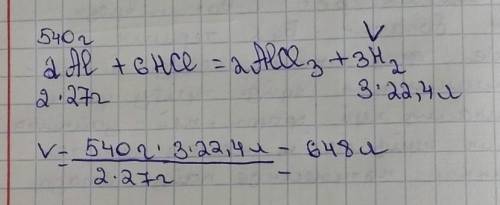 540г V
2Al + 6HCl = 2AlCl₃ + 3H₂
2·27г 3·22,4л
V = 540г · 3·22,4л / 2·27г = 648л